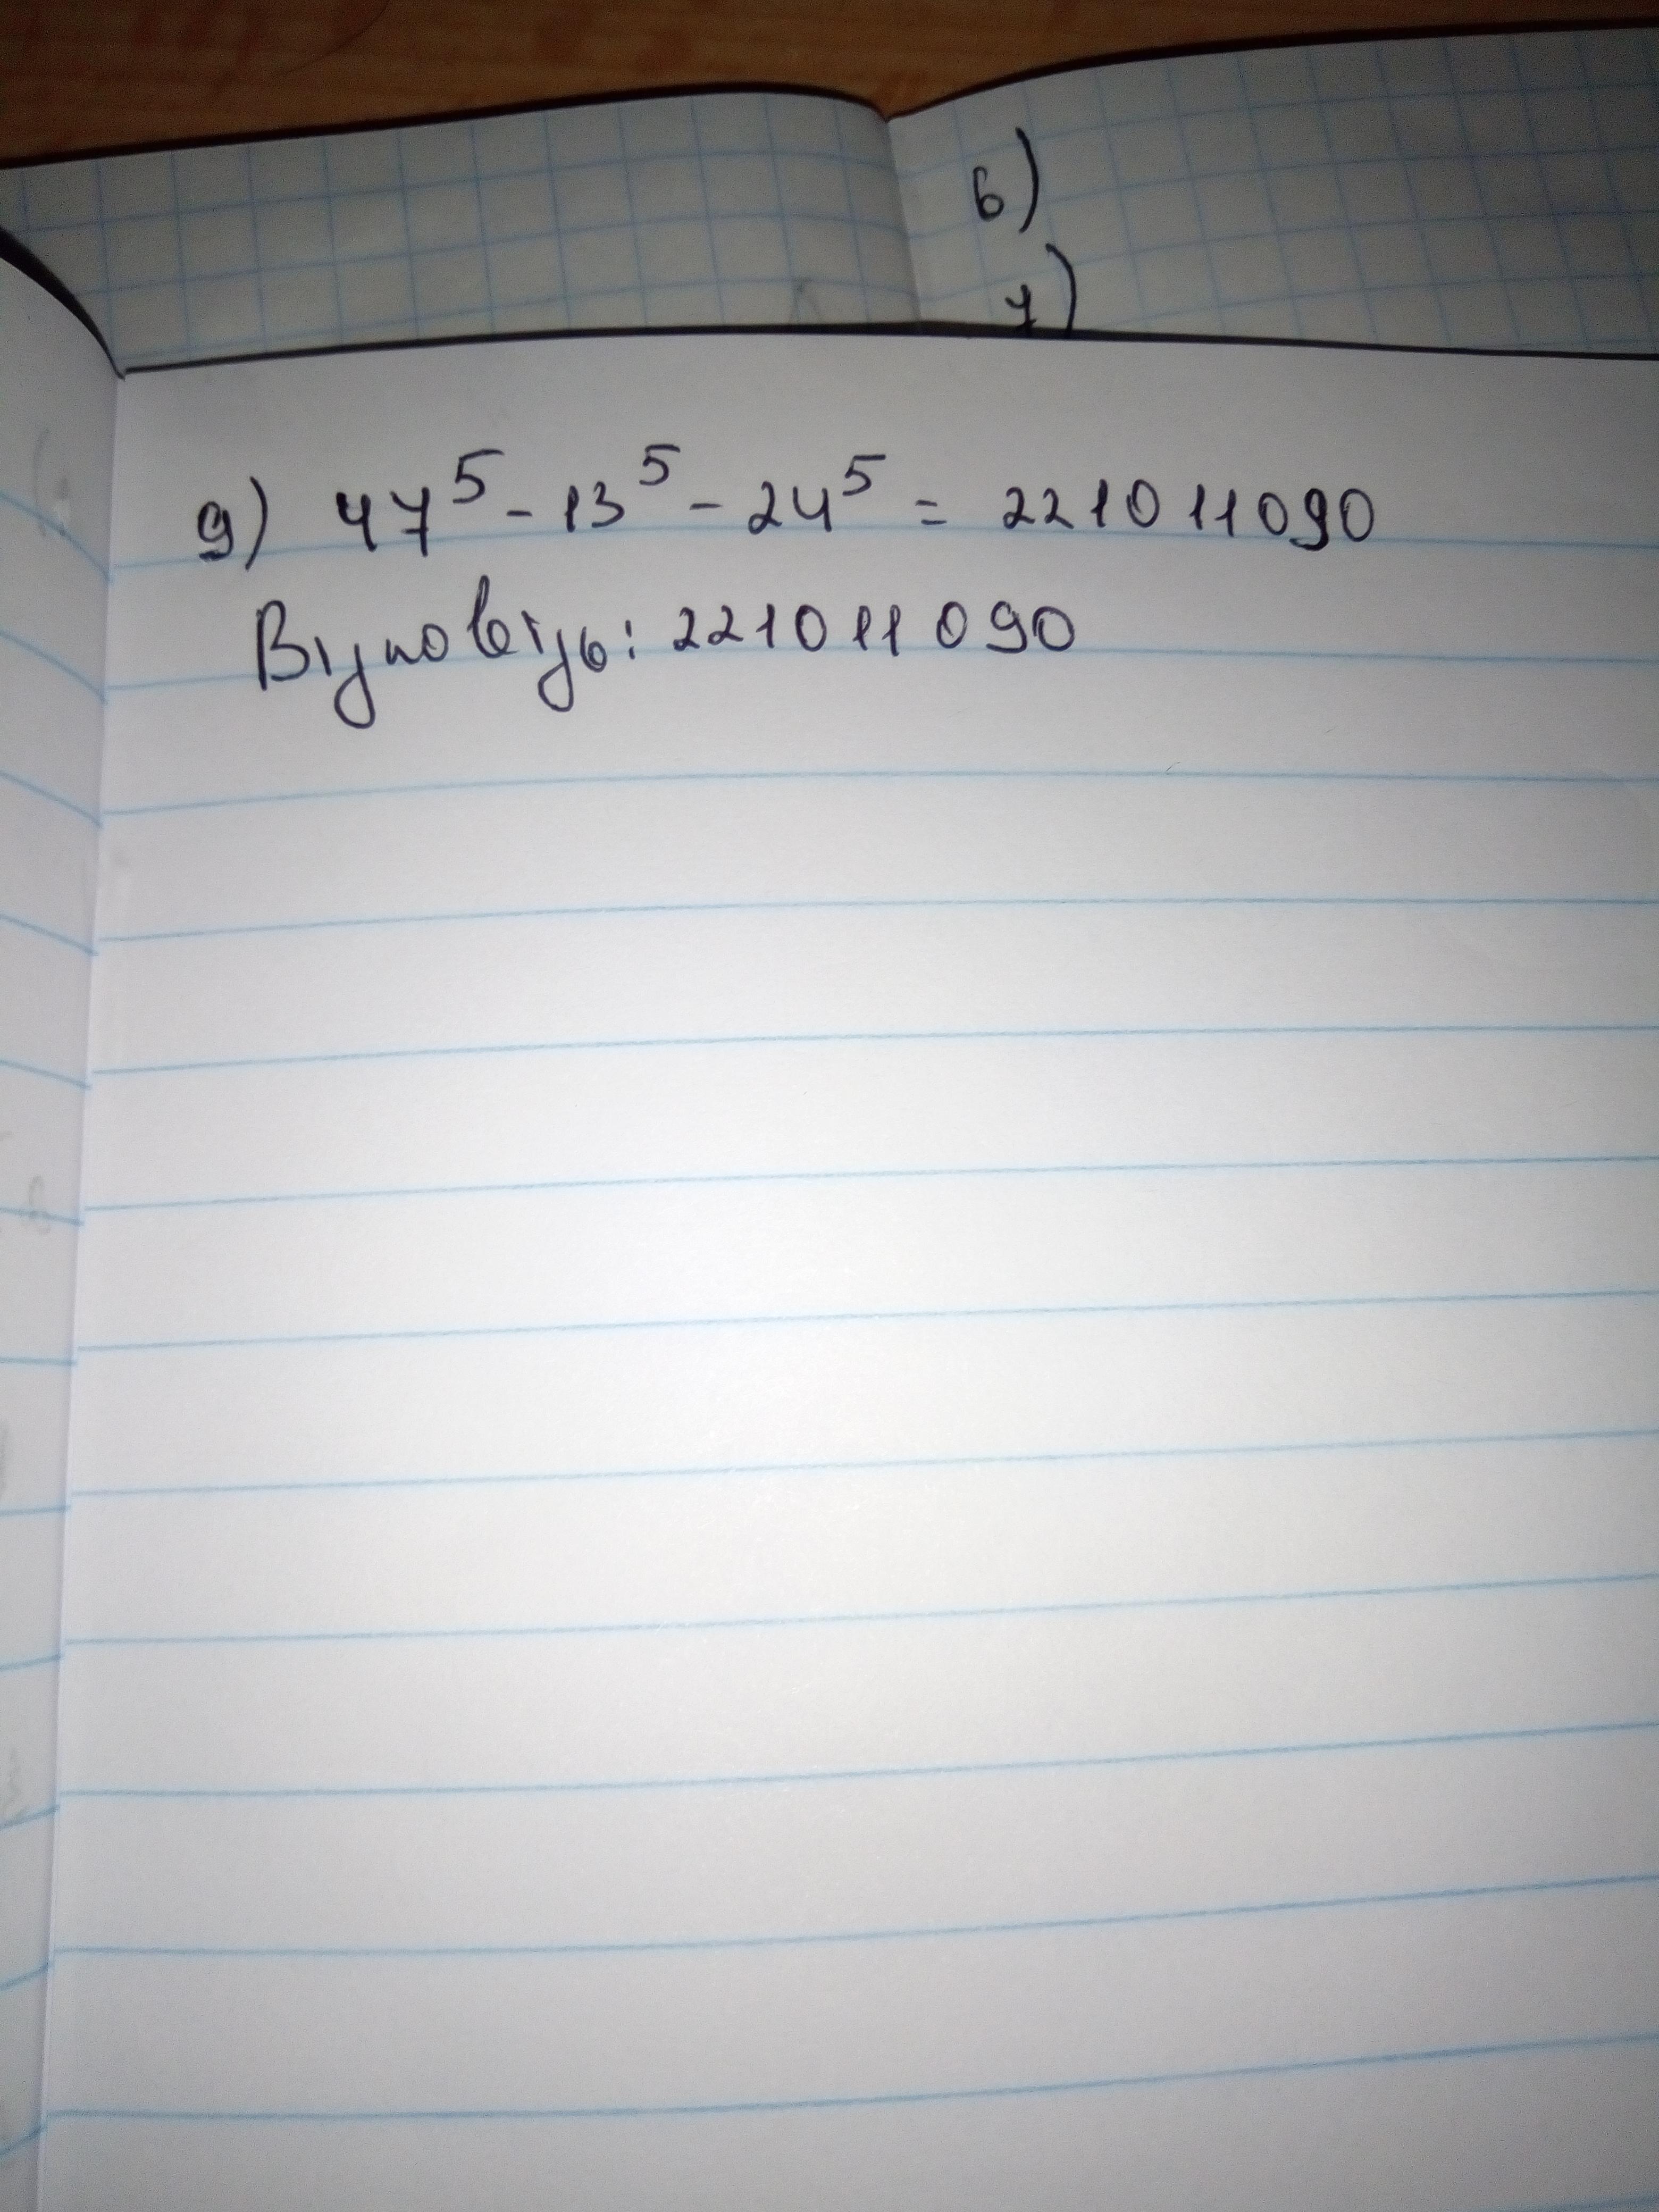 6)
7)
9) 47⁵ - 13⁵ - 24⁵ = 221011090
Відповідь: 221011090